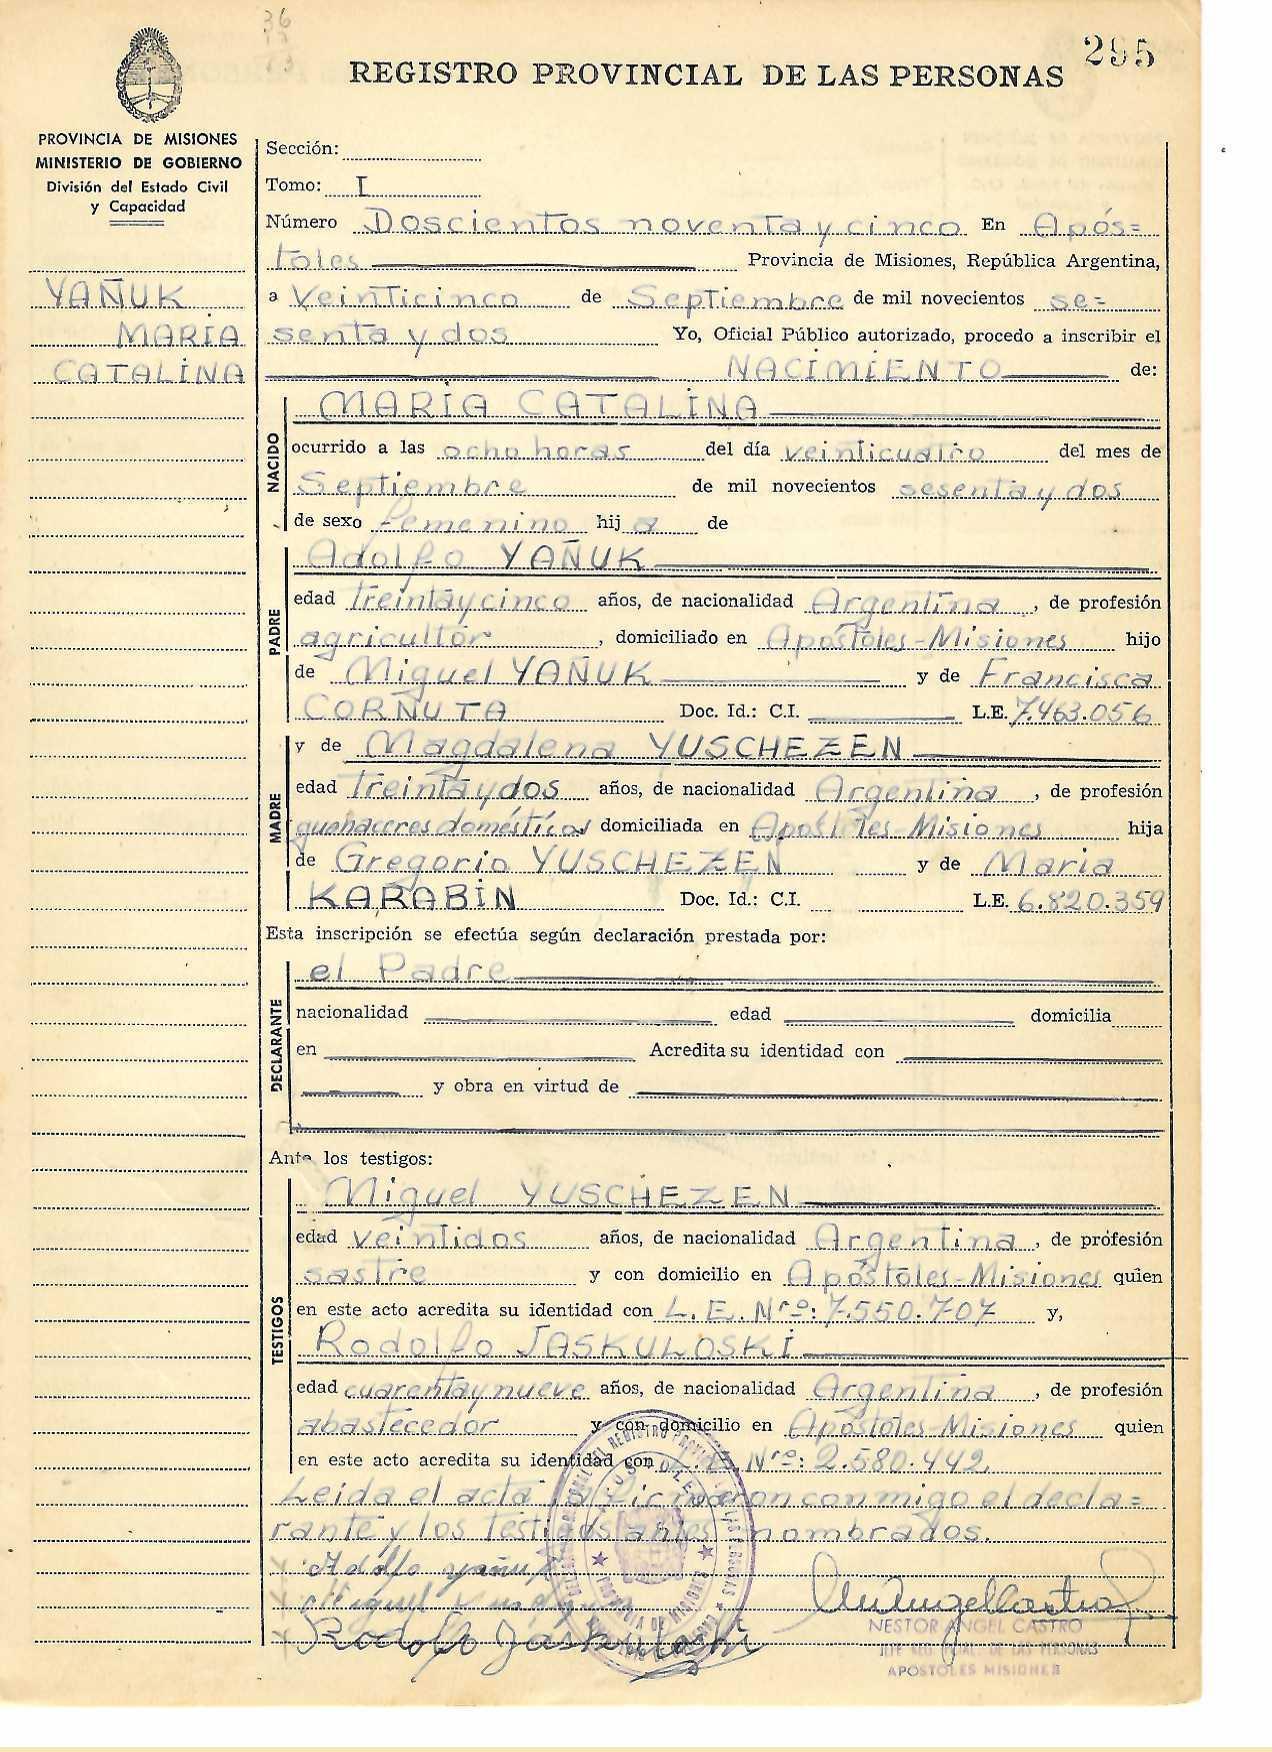 295
REGISTRO PROVINCIAL DE LAS PERSONAS
PROVINCIA DE MISIONES
MINISTERIO DE GOBIERNO
División del Estado Civil
y Capacidad
YAÑUK
MARÍA
CATALINA
Sección:
Tomo: I
Número Doscientos noventa y cinco En Após=
toles Provincia de Misiones, República Argentina,
a Veinticinco de Septiembre de mil novecientos se=
senta y dos Yo, Oficial Público autorizado, procedo a inscribir el
NACIMIENTO de:
NACIDO
MARÍA CATALINA
ocurrido a las ocho horas del día veinticuatro del mes de
Septiembre de mil novecientos sesenta y dos
de sexo femenino hij a de
PADRE
Adolfo YAÑUK
edad treinta y cinco años, de nacionalidad Argentina, de profesión
agricultor, domiciliado en Apóstoles-Misiones hijo
de Miguel YAÑUK y de Francisca
CORÑUTA Doc. Id.: C.I. L.E. 7.463.056
MADRE
y de Magdalena YUSCHEZEN
edad treinta y dos años, de nacionalidad Argentina, de profesión
quehaceres domésticos domiciliada en Apóstoles-Misiones hija
de Gregorio YUSCHEZEN y de Maria
KARABIN Doc. Id.: C.I. L.E. 6.820.359
Esta inscripción se efectúa según declaración prestada por:
DECLARANTE
el Padre
nacionalidad edad domicilia
en Acredita su identidad con
y obra en virtud de
Ante los testigos:
TESTIGOS
Miguel YUSCHEZEN
edad veintidos años, de nacionalidad Argentina, de profesión
sastre y con domicilio en Apóstoles-Misiones quien
en este acto acredita su identidad con L.E. Nro: 7.550.707 y,
Rodolfo JASKULOSKI
edad cuarenta y nueve años, de nacionalidad Argentina, de profesión
abastecedor y con domicilio en Apóstoles-Misiones quien
en este acto acredita su identidad con L.E. Nro: 2.580.442.
Leida el acta la firmaron conmigo el decla=
rante y los testigos antes nombrados.
Adolfo Yañuk
Miguel
Rodolfo Jaskuloski
NESTOR ANGEL CASTRO
JEFE REG. PCIAL. DE LAS PERSONAS
APOSTOLES MISIONES